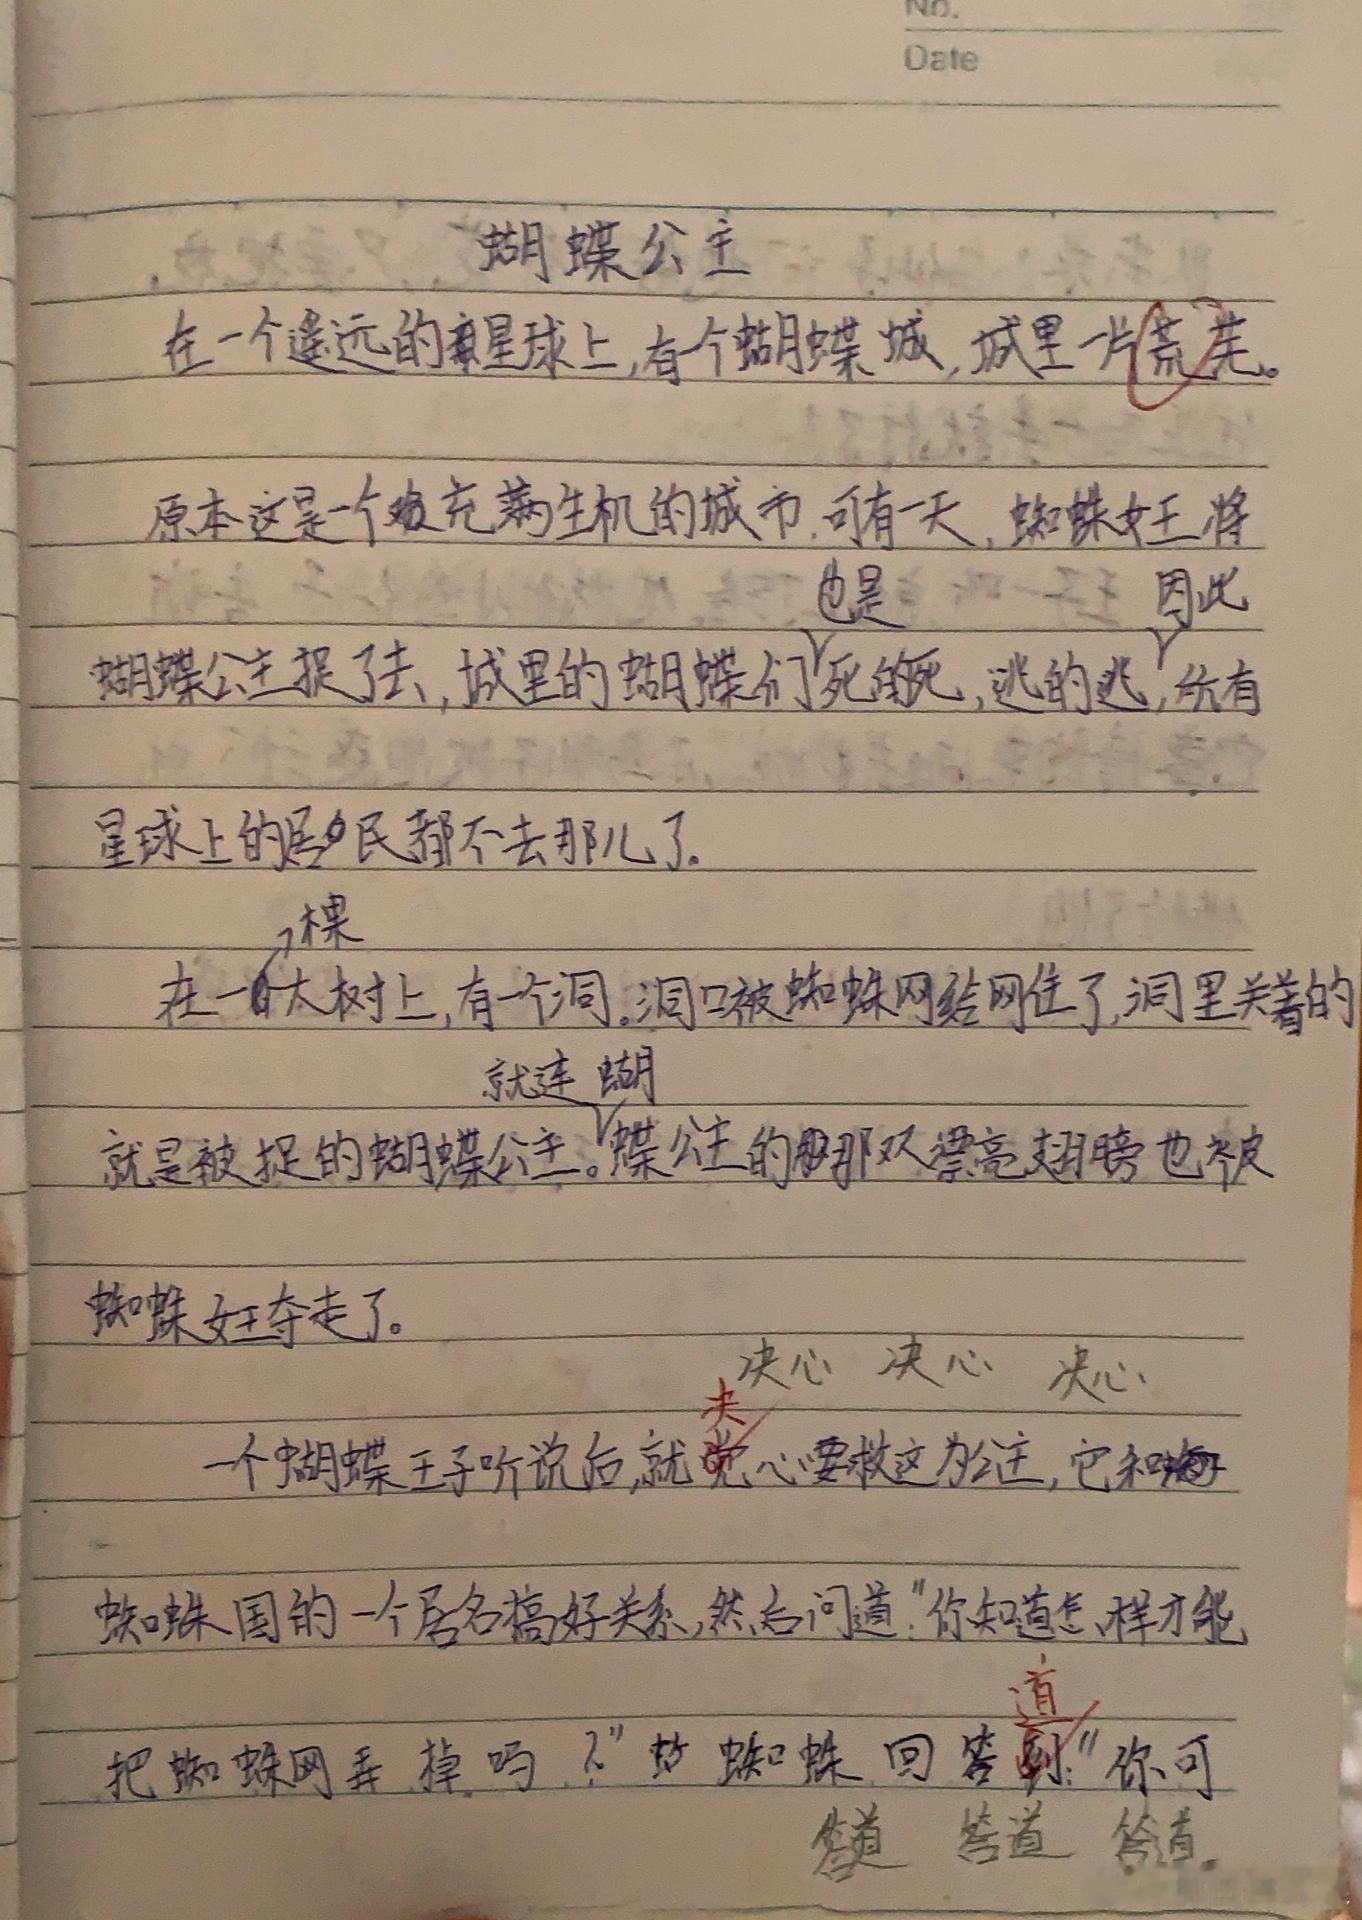 No.
Date
蝴蝶公主
在一个遥远的星球上,有个蝴蝶城,城里一片荒芜。
原本这是一个充满生机的城市,可有一天,蜘蛛女王将
也是 因此
蝴蝶公主捉了去,城里的蝴蝶们死的死,逃的逃,所有
星球上的居民都不去那儿了。
棵
在一大树上,有一个洞。洞口被蜘蛛网给网住了,洞里关着的
就连 蝴
就是被捉的蝴蝶公主。蝶公主的那双漂亮翅膀也被
蜘蛛女王夺走了。
决心 决心 决心
决
一个蝴蝶王子听说后,就觉心要救这为公主,它和
蜘蛛国的一个居名搞好关系,然后问道:"你知道怎样才能
道
把蜘蛛网弄掉吗?"蜘蛛回答到:"你可
答道 答道 答道